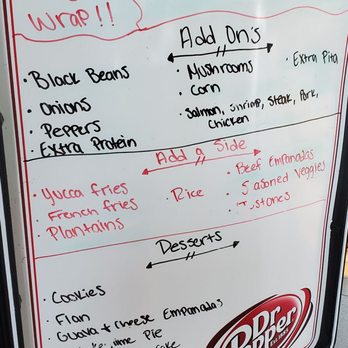 Wrap!!
Add On's
· Black Beans
· Onions
· Peppers
· Extra Protein
· Mushrooms
· Corn
· Salmon, Shrimp, Steak, Pork,
Chicken
· Extra Pita
Add a Side
· Yucca fries
· French fries
· Plantains
· Rice
· Beef Empanadas
· Seasoned Veggies
Desserts
· Cookies
· Flan
· Guava & Cheese Empanadas
Pie
Dr
Pepper